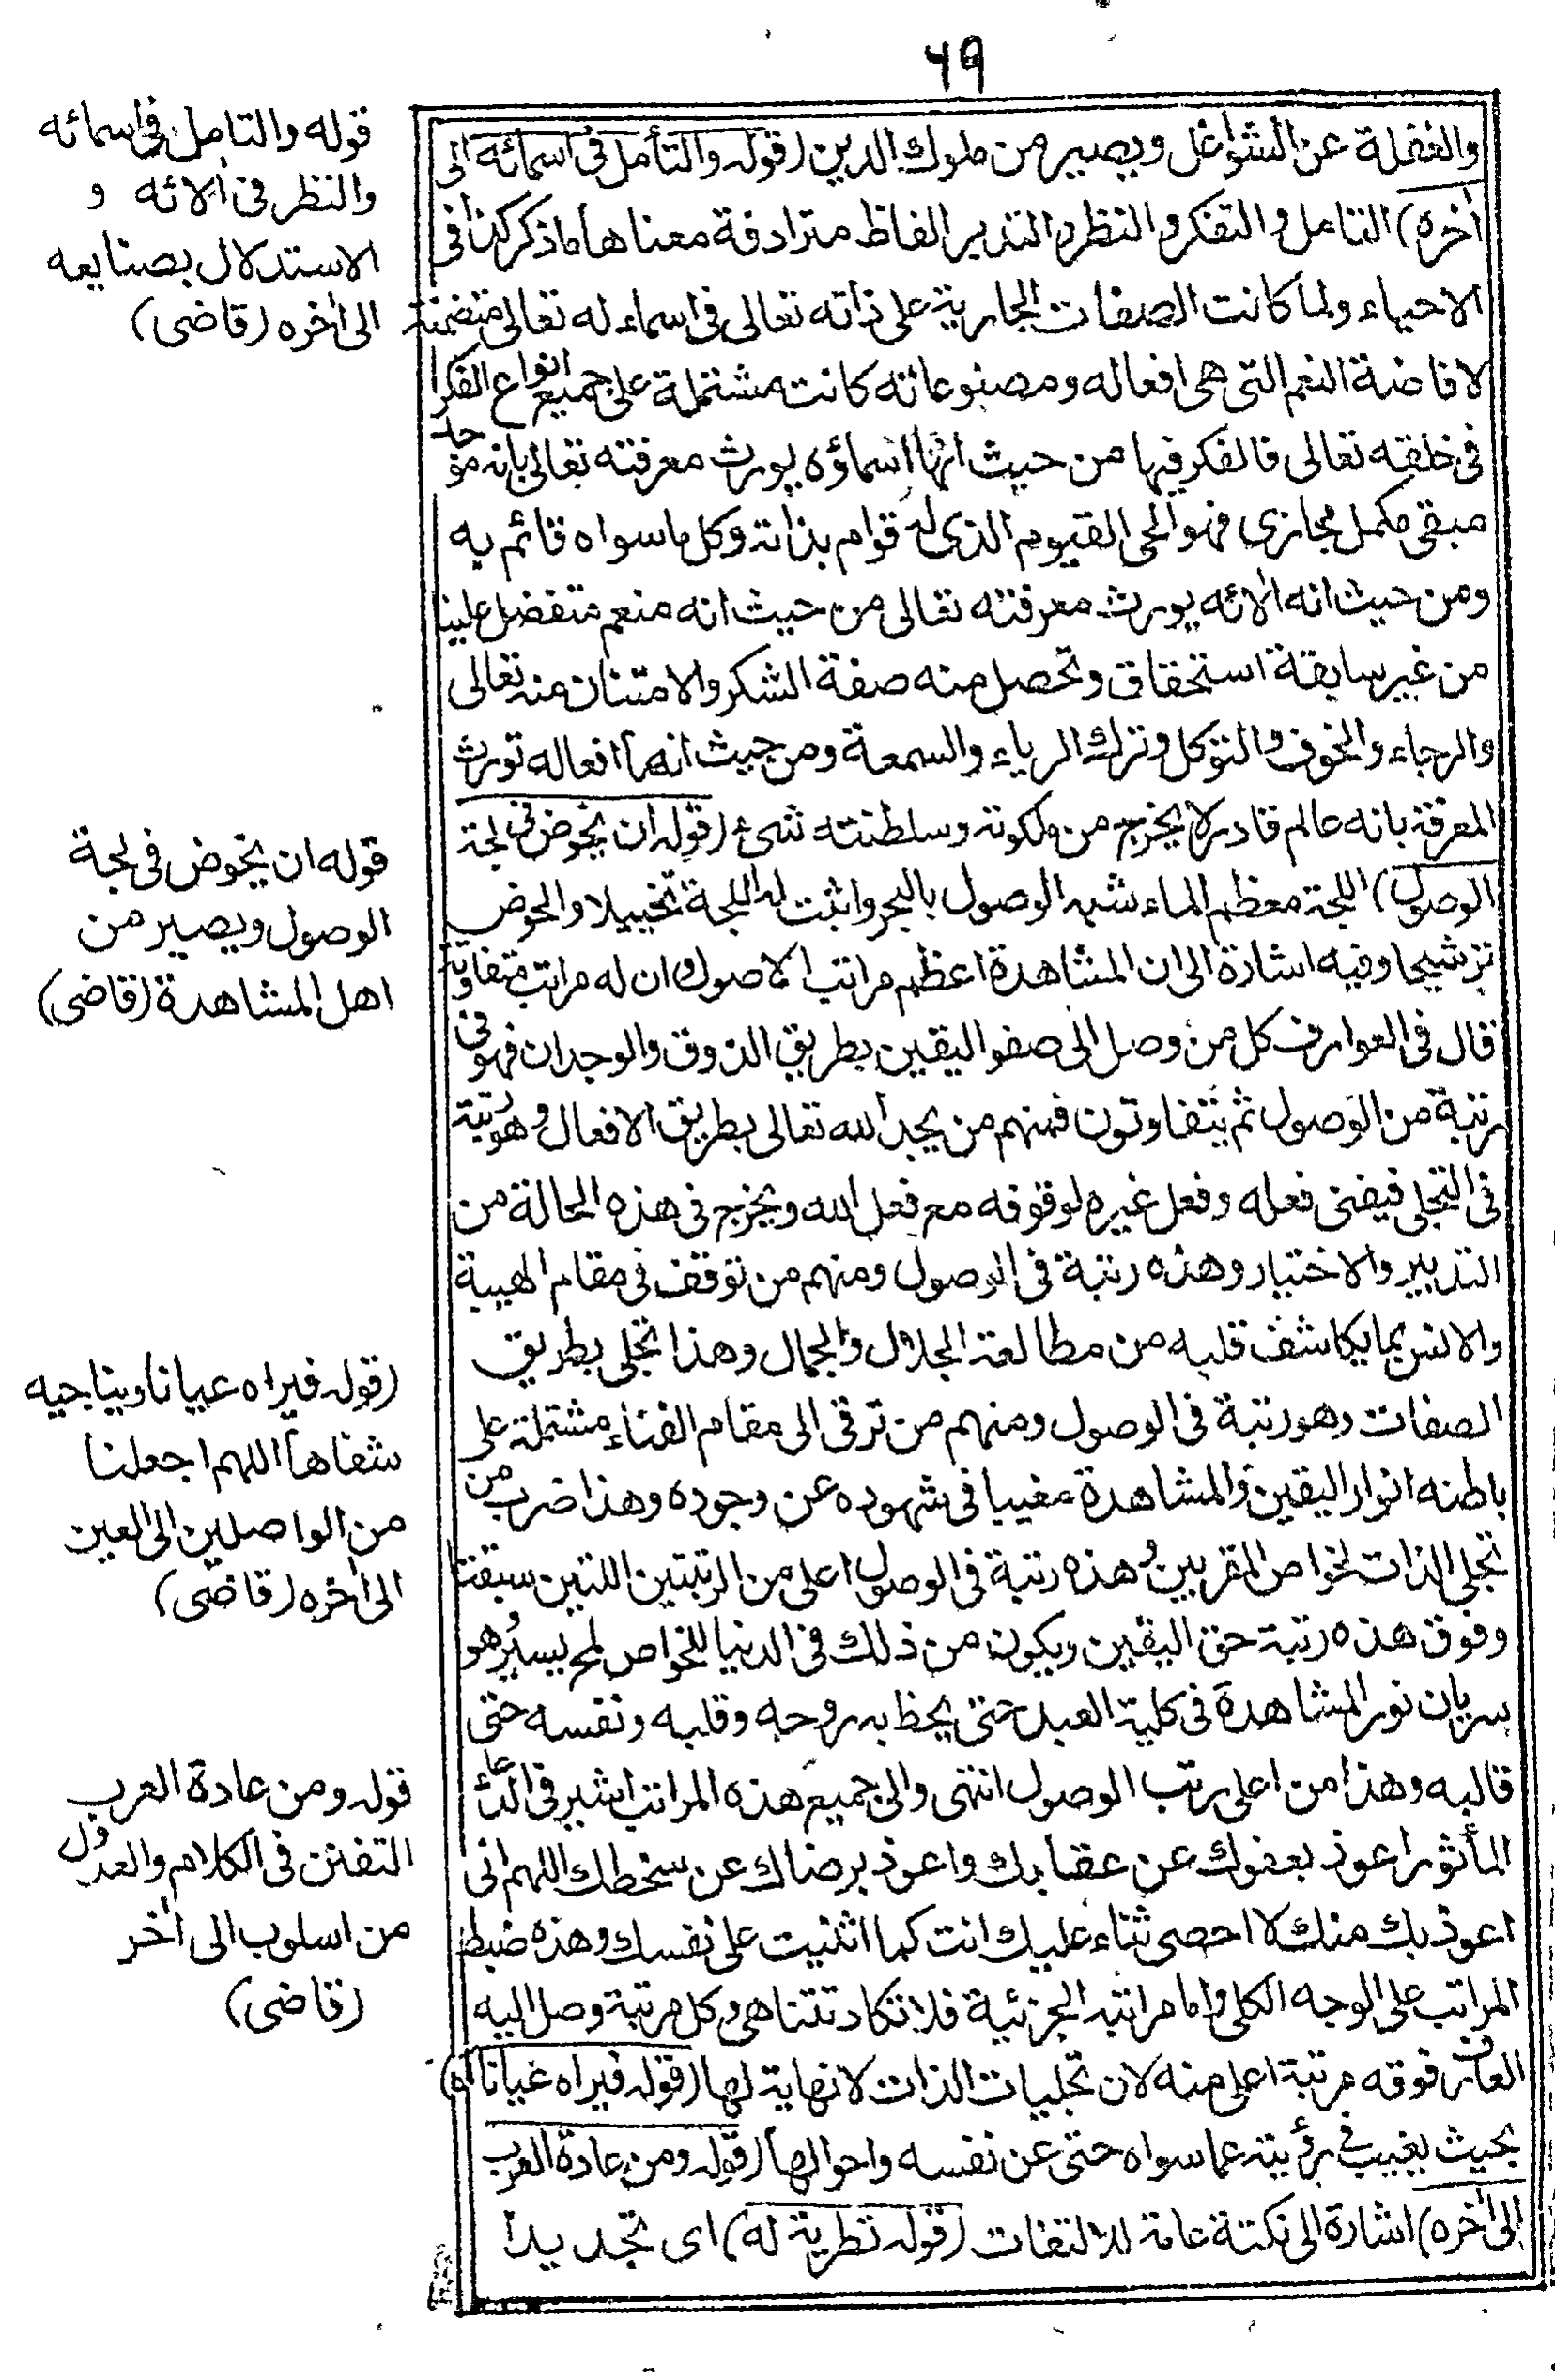 ٦٩
والغفلة عن الشواغل ويصير من ملوك الدين (قوله والتأمل فى اسمائه الى
اٰخره) التامل والتفكر والنظر والتدبر الفاظ مترادفة معناها ماذكر كذا فى
الاحياء ولما كانت الصفات الجارية على ذاته تعالى فى اسماء له تعالى متضمنة
لافاضة النعم التى هى افعاله ومصنوعاته كانت مشتملة على جميع انواع الفكر
فى خلقه تعالى فالفكر فيها من حيث انها اسماؤه يورث معرفته تعالى بانه موجد
مبقى مكمل مجازى فهو الحى القيوم الذى له قوام بذاته وكل ماسواه قائم به
ومن حيث انه اٰلائه يورث معرفته تعالى من حيث انه منعم متفضل علينا
من غير سابقة استحقاق وتحصل منه صفة الشكر والامتنان منه تعالى
والرجاء والخوف والتوكل وترك الرياء والسمعة ومن حيث انها افعاله تورث
المعرفة بانه عالم قادر لا يخرج من ملكوته وسلطنته شىء (قوله ان يخوض فى لجة
الوصول) اللجة معظم الماء شبه الوصول بالبحر واثبت له اللجة تخييلا والخوض
ترشيحا وفيه اشارة الى ان المشاهدة اعظم مراتب الاصول وان له مراتب متفاوتة
قال فى العوارف كل من وصل الى صفو اليقين بطريق الذوق والوجدان فهو فى
رتبة من الوصول ثم يتفاوتون فمنهم من يجد الله تعالى بطريق الافعال وهو رتبة
فى التجلى فيفنى فعله وفعل غيره لوقوفه مع فعل الله ويخرج فى هذه الحالة من
التدبير والاختيار وهذه رتبة فى الوصول ومنهم من توقف فى مقام الهيبة
والانس بما يكاشف قلبه من مطالعة الجلال والجمال وهذا تجلى بطريق
الصفات وهو رتبة فى الوصول ومنهم من ترقى الى مقام الفناء مشتملة على
باطنه انوار اليقين والمشاهدة مغيبا فى شهوده عن وجوده وهذا ضرب من
تجلى الذات لخواص المقربين وهذه رتبة فى الوصول اعلى من الرتبتين اللتين سبقتا
وفوق هذه رتبة حق اليقين ويكون من ذلك فى الدنيا للخواص لمح يسير هو
سريان نور المشاهدة فى كلية العبد حتى يحظ به روحه وقلبه ونفسه حتى
قالبه وهذا من اعلى رتب الوصول انتهى والى جميع هذه المراتب اشير فى الدعاء
المأثور اعوذ بعفوك عن عقابك واعوذ برضاك عن سخطك اللهم انى
اعوذ بك منك لا احصى ثناء عليك انت كما اثنيت على نفسك وهذه ضبط
المراتب على الوجه الكلى واما مراتبه الجزئية فلا تكاد تتناهى وكل مرتبة وصل اليه
العارف فوقه مرتبة اعلى منه لان تجليات الذات لا نهاية لها (قوله فيراه عيانا اه)
بحيث يغيب فى رؤيته عما سواه حتى عن نفسه واحوالها (قوله ومن عادة العرب
الى اٰخره) اشارة الى نكتة عامة للالتفات (قوله تطرية له) اى تجديدا
قوله والتامل فى اسمائه
والنظر فى اٰلائه و
الاستدلال بصنايعه
الى اٰخره (قاضى)
قوله ان يخوض فى لجة
الوصول ويصير من
اهل المشاهدة (قاضى)
(قوله فيراه عيانا ويناجيه
شفاها اللهم اجعلنا
من الواصلين الى العين
الى اٰخره (قاضى)
قوله ومن عادة العرب
التفنن فى الكلام والعدول
من اسلوب الى اٰخر
(قاضى)